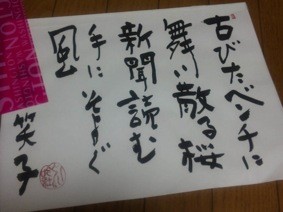 古びたベンチに
舞い散る桜
新聞読む
手にそよぐ
風
笑子